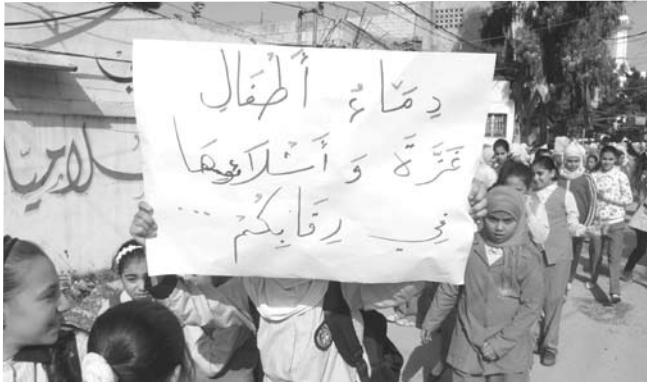 دِمَاءُ أَطْفَالِ
غَزَّةَ وَ أَشْلَاءُهَا
فِي رِقَابِكُمْ ...